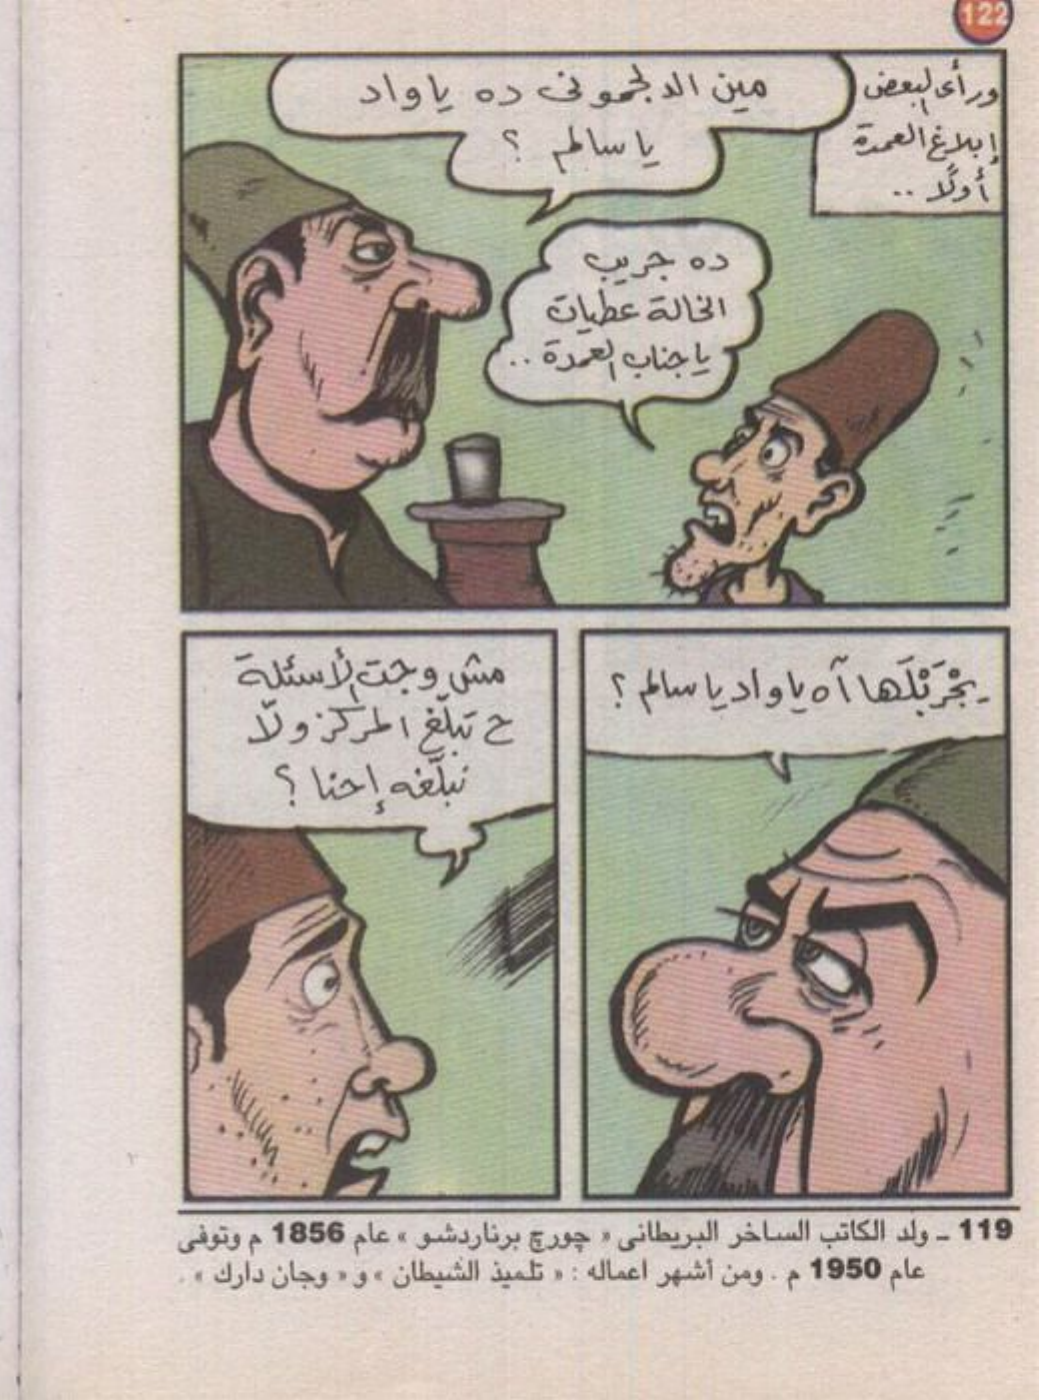 122
ورأى البعض
إبلاغ العمدة
أولًا ..
مين الدلجموني ده ياواد
ياسالم ؟
ده جريب
الخالة عطيات
ياجناب العمدة ..
يجْرَبْلَها آه ياواد ياسالم ؟
مش وجت الأسئلة
ح تبلّغ المركز ولّا
نبلّغه إحنا ؟
119 ـ ولد الكاتب الساخر البريطانى « چورچ برناردشو » عام 1856 م وتوفى
عام 1950 م . ومن أشهر اعماله : « تلميذ الشيطان » و « وجان دارك » .